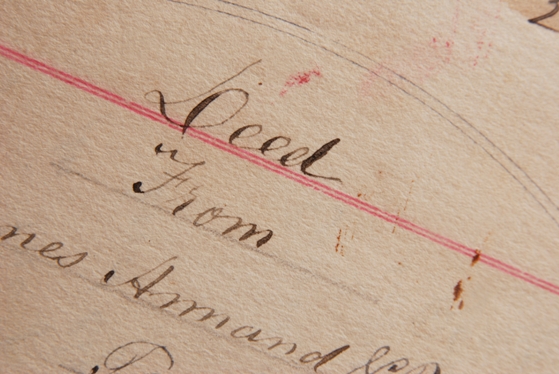 Deed
From
nes Armand